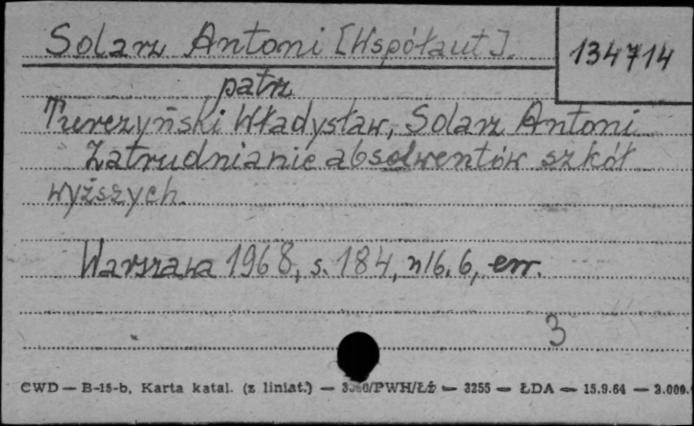 Solarz Antoni [Współaut].
134714
patrz
Turczyński Władysław, Solarz Antoni
Zatrudnianie absolwentów szkół
wyższych.
Warszawa 1968, s. 184, nlb. 6, err.
3
CWD — B-15-b, Karta katal. (z liniat.) — /PWH/Łź — 3255 — ŁDA — 15.9.64 — 2.000.